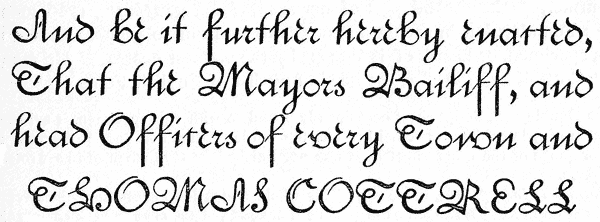 And be it further hereby enacted,
That the Mayors Bailiff, and
head Officers of every Town and
THOMAS COTTRELL